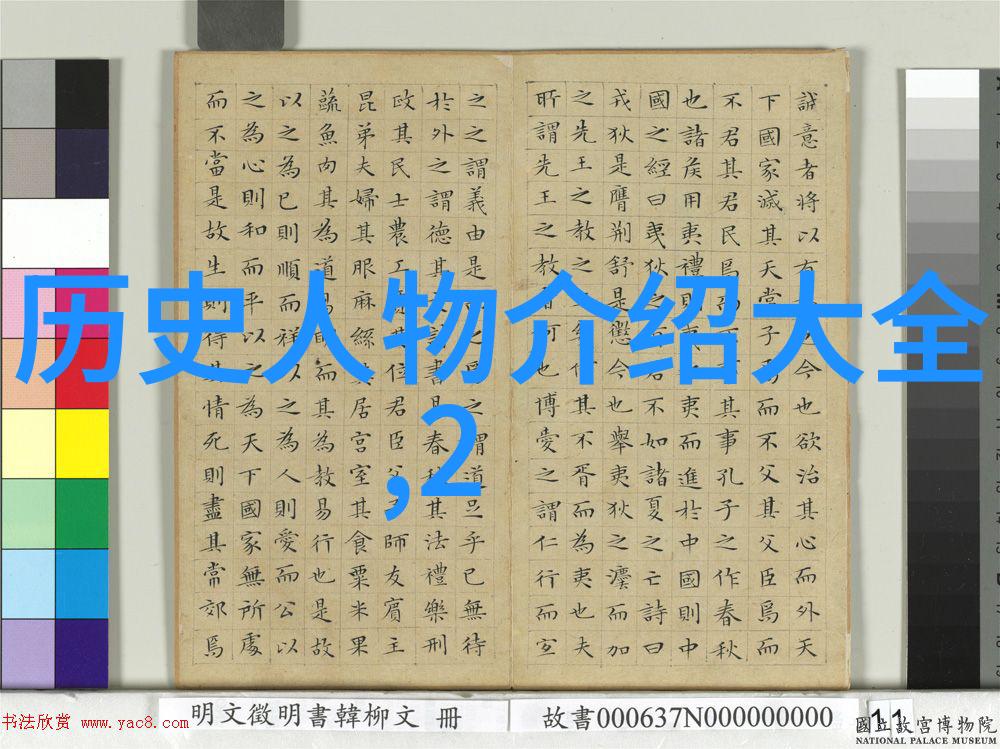 誠意者將以有今也欲治其心而外天
下國家滅其天常子焉而不父其父臣焉而
不君其君民焉而不事其事孔子之作春秋
也諸侯用夷禮則夷之夷而進於中國則中
國之經曰夷狄之君不如諸夏之亡詩曰
戎狄是膺荆舒是懲今也舉夷狄之灋而加
之先王之教之何其不胥而為夷也夫
所謂先王之教者何也博愛之謂仁行而宜
之之謂義由是之焉之謂道足乎已無待
於外之謂德其文詩書易春秋其法禮樂刑
政其民士農工賈其位君臣父子師友賓主
昆弟夫婦其服麻絲其居宮室其食粟米果
蔬魚肉其為道易明而其為教易行也是故
以之為已則順而祥以之為人則愛而公以
之為心則和而平以之為天下國家無所處
而不當是故生則得其情死則盡其常郊焉
历史人物介绍大全
,2
明文徵明書韓柳文 冊
故書000637N000000000
11
书法欣赏 www.yac8.com
國立故宮博物院
NATIONAL PALACE MUSEUM